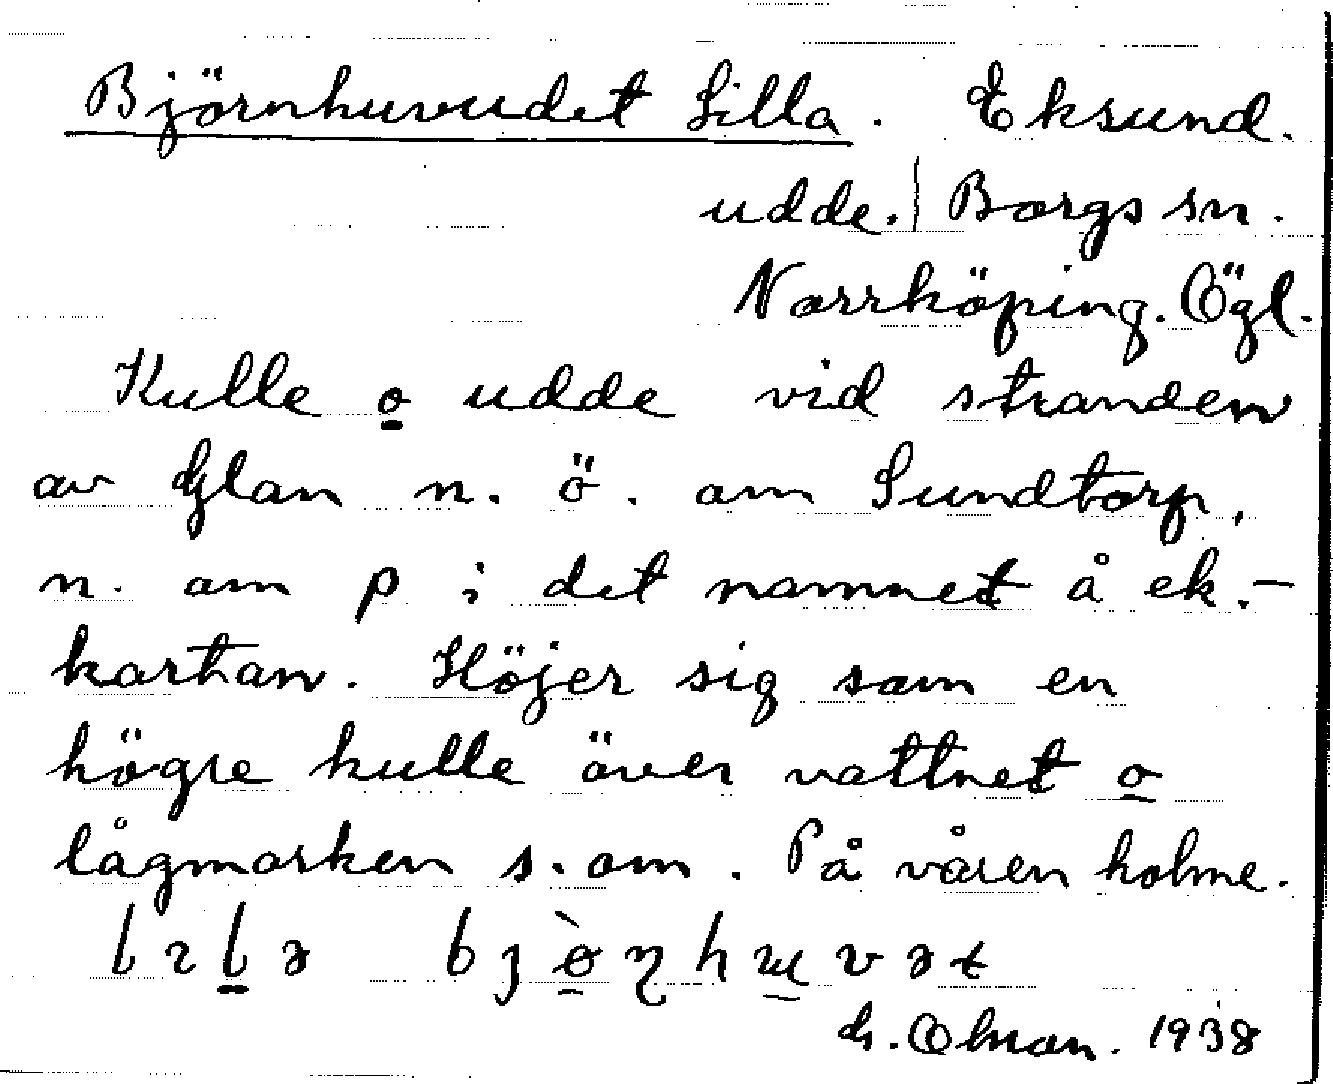 Björnhuvudet Lilla. Eksund.
udde. | Borgs sn.
Norrköping. Ögl.
Kulle o udde vid stranden
av Glan n. ö. om Sundtorp,
n. om p i det namnet å ek.-
kartan. Höjer sig som en
högre kulle över vattnet o
lågmarken s. om. På våren holme.
G. Olson. 1938